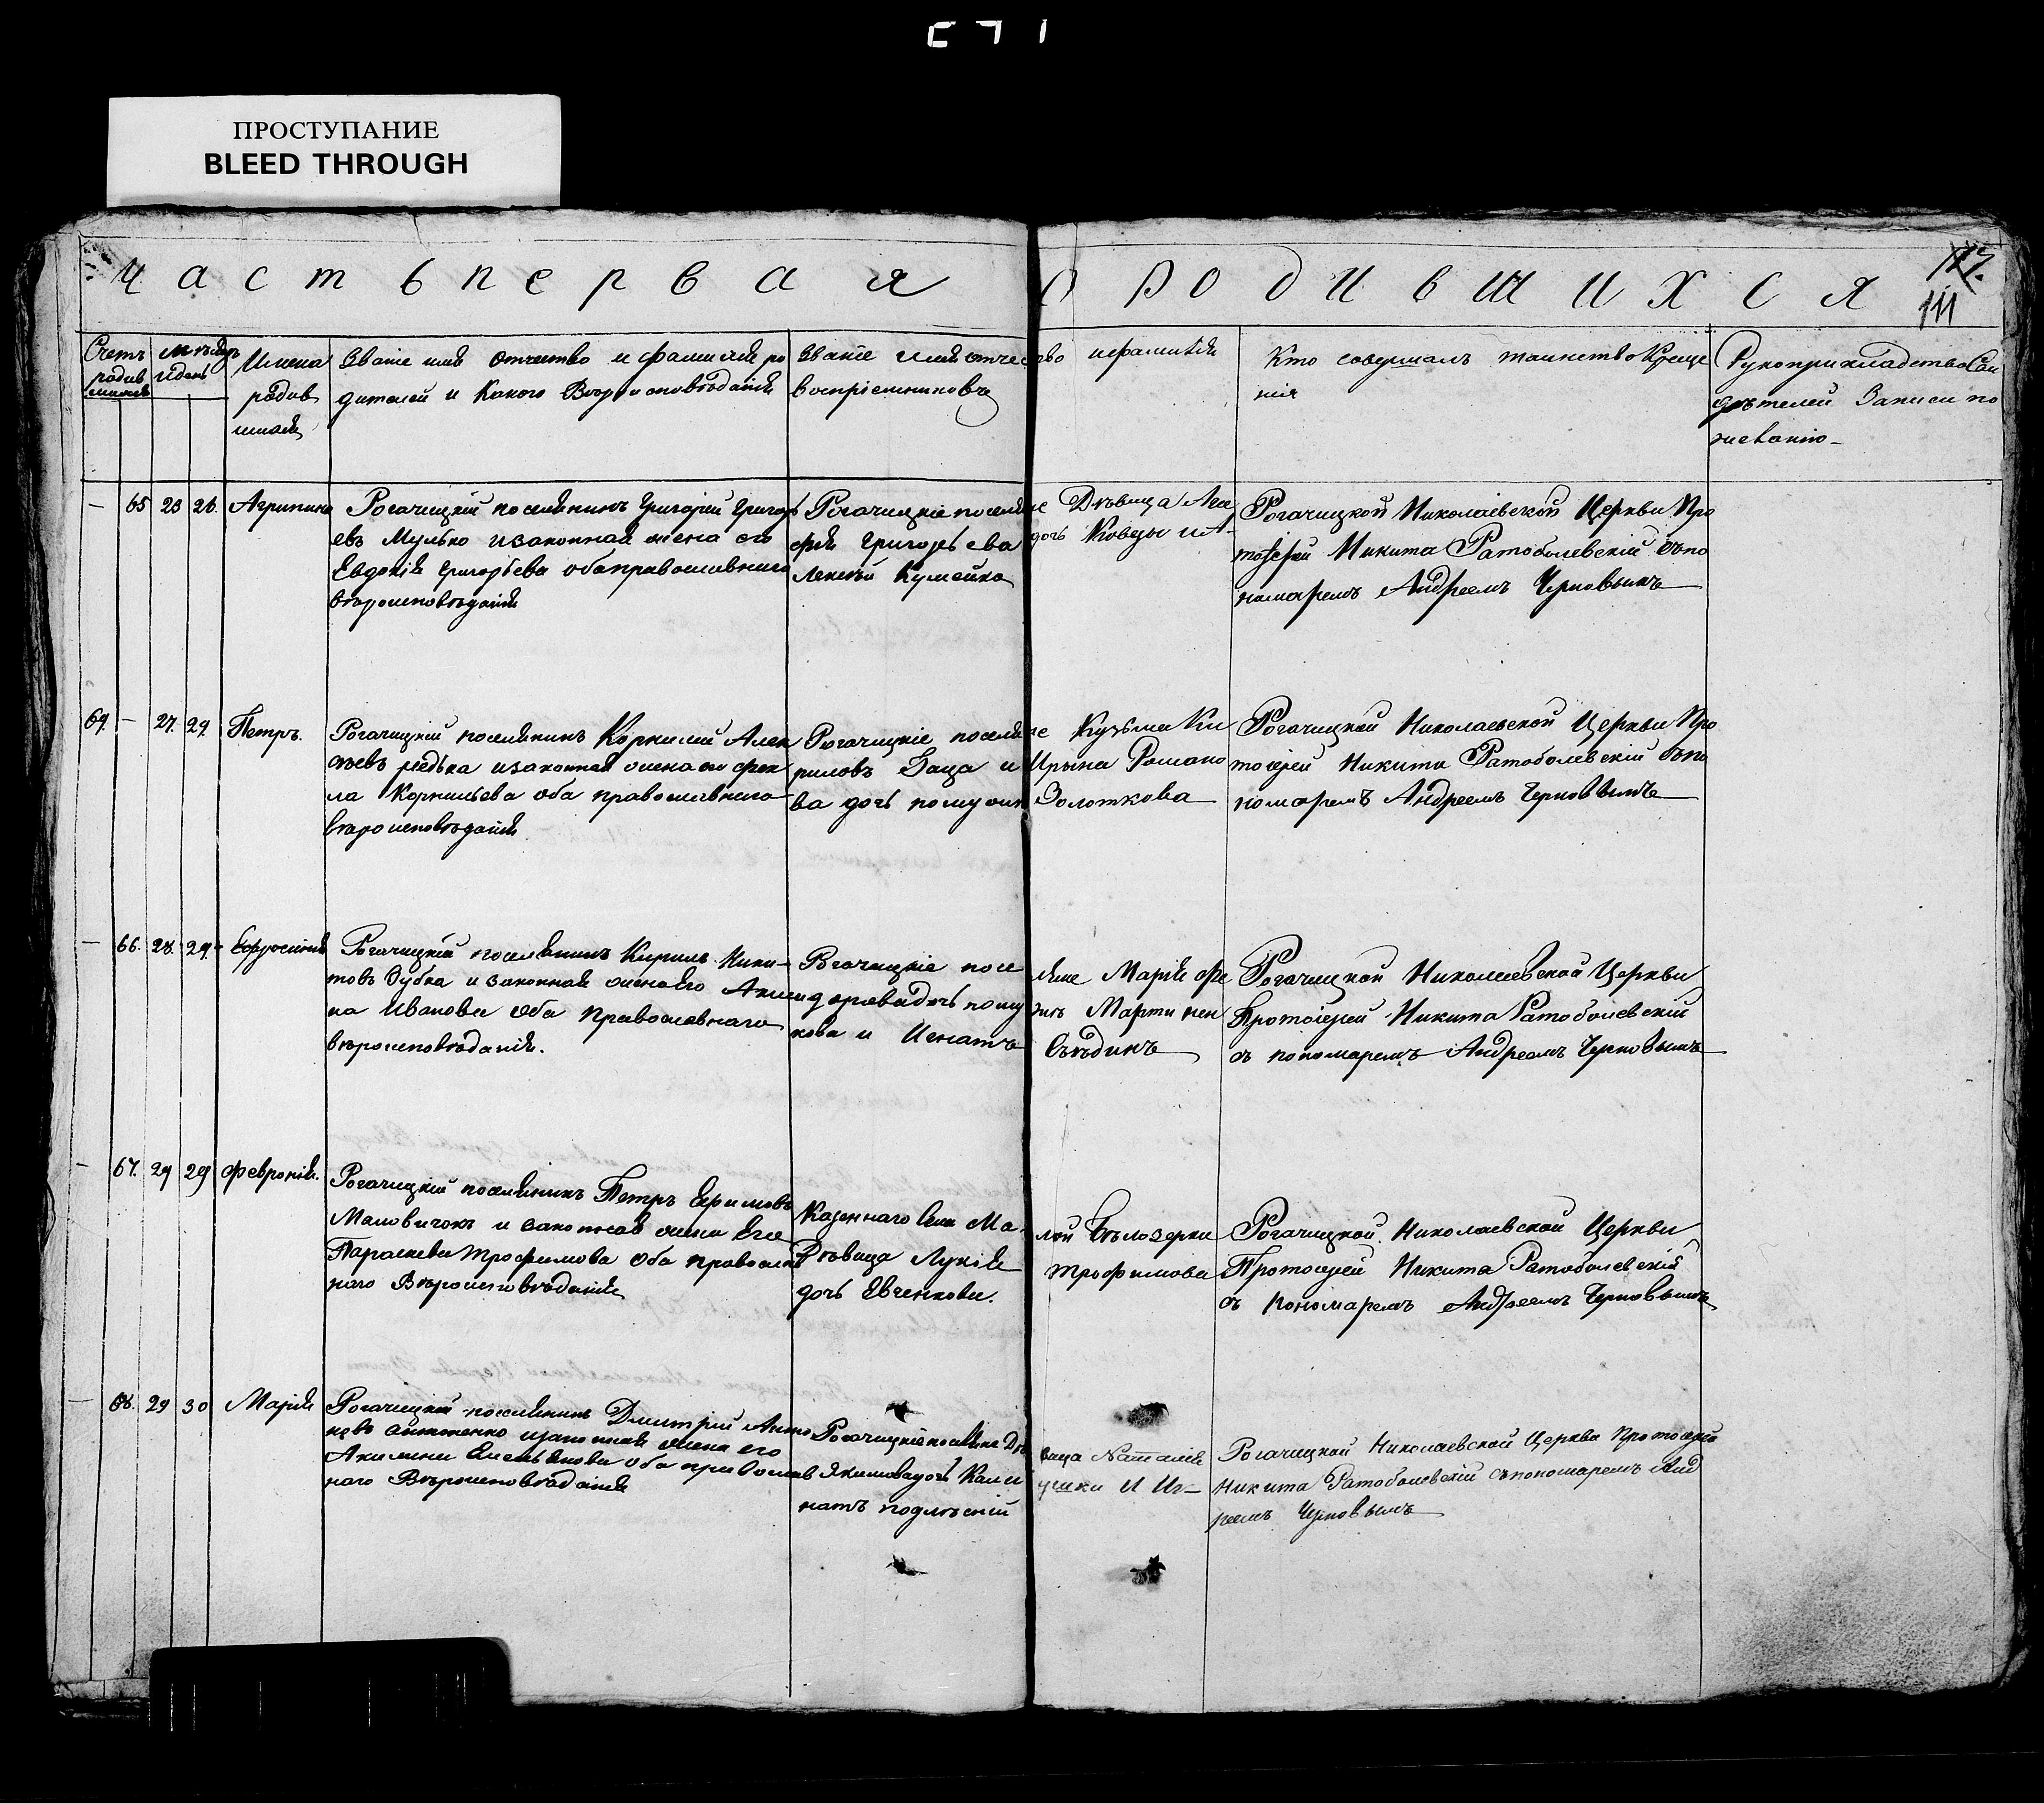 ПРОСТУПАНИЕ
BLEED THROUGH
Часть первая о Родившихся
111
Счетъ родив шихся
Мѣсяцъ и день
Имена родив шихся
Званіе имя отчество и фамилія ро
дителей и Какого Вѣроисповѣданія
Званіе имя отчество и фамилія
воспріемниковъ
Кто совершалъ таинство Креще
нія
Рукоприкладство сви
дѣтелей Записи по
желанію
— 65 23 26. Агрипина
Рогачицкій поселянинъ Григорій Григорь
евъ Мулько и законная жена его
Евдокія Григорьева оба православнаго
вѣроисповѣданія
Рогачицкіе поселяне Дѣвица Ага
фія Григорьева дочь Ковцы и А-
лексѣй Кумейко
Рогачицкой Николаевской Церкви Про
тоіерей Никита Ратоболевскій съ по
номаремъ Андреемъ Черновымъ
69. — 27. 29. Петръ.
Рогачицкій поселянинъ Корнилій Алек
сѣевъ рѣдька и законная жена его Фек
ла Корнильева оба православнаго
вѣроисповѣданія
Рогачицкіе поселяне Кузьма Ки
риловъ Заца и Ирына Романо
ва дочь по мужи Золоткова
Рогачицкой Николаевской Церкви Про
тоіерей Никита Ратоболевскій съ по
номаремъ Андреемъ Черновымъ
— 66. 28. 29. Ефросинія
Рогачицкій поселянинъ Кирилъ Ники-
товъ Зубка и законная жена его Акили
на Иванова Оба Православнаго
вѣроисповѣданія.
Рогачицкіе поселяне Марія Фе
дорова дочь по мужѣ Мартинен
кова и Игнатъ Сѣдинъ
Рогачицкой Николаевской Церкви
Протоіерей Никита Ратоболевскій
съ пономаремъ Андреемъ Черновымъ
— 67. 29 29 Февронія.
Рогачицкій поселянинъ Петръ Ефимовъ
Маловичокъ и законная жена Его
Параскева Трофимова Оба православ
наго Вѣроисповѣданія
Казеннаго Села Ма-лой Бѣлозерки
Дѣвица Лукія Трофимова
дочь Евченкова.
Рогачицкой Николаевской Церкви
Протоіерей Никита Ратоболевскій
съ пономаремъ Андреемъ Черновымъ
— 68. 29 30 Марія
Рогачицкій поселянинъ Дмитрій Анто
новъ и законная жена его
Акилина Емельянова оба православ
наго Вѣроисповѣданія
Рогачицкіе поселяне Дѣвица Наталія
Якимова дочь и Иг-
натъ подлѣсній
Рогачицкой Николаевской Церкви Протоіерей
Никита Ратоболевскій съ пономаремъ Анд
реемъ Черновымъ